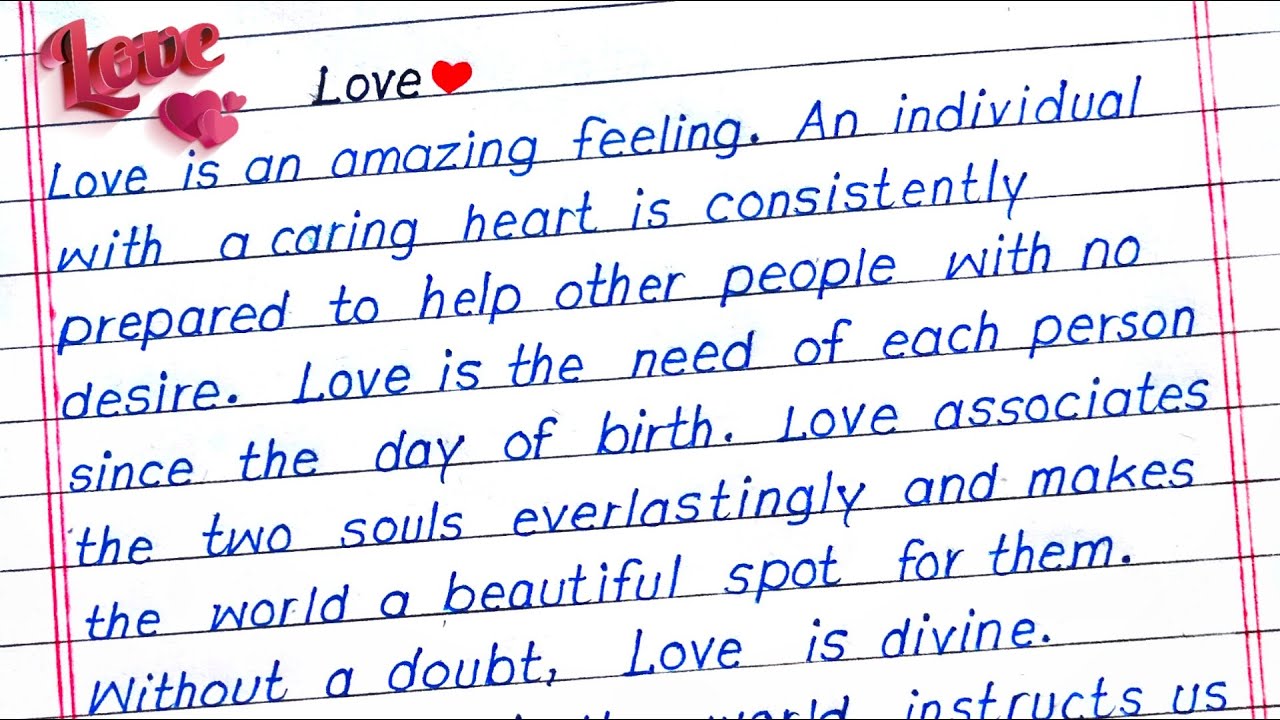 Love
Love
Love is an amazing feeling. An individual
with a caring heart is consistently
prepared to help other people with no
desire. Love is the need of each person
since the day of birth. Love associates
the two souls everlastingly and makes
the world a beautiful spot for them.
Without a doubt, Love is divine.
world instructs us